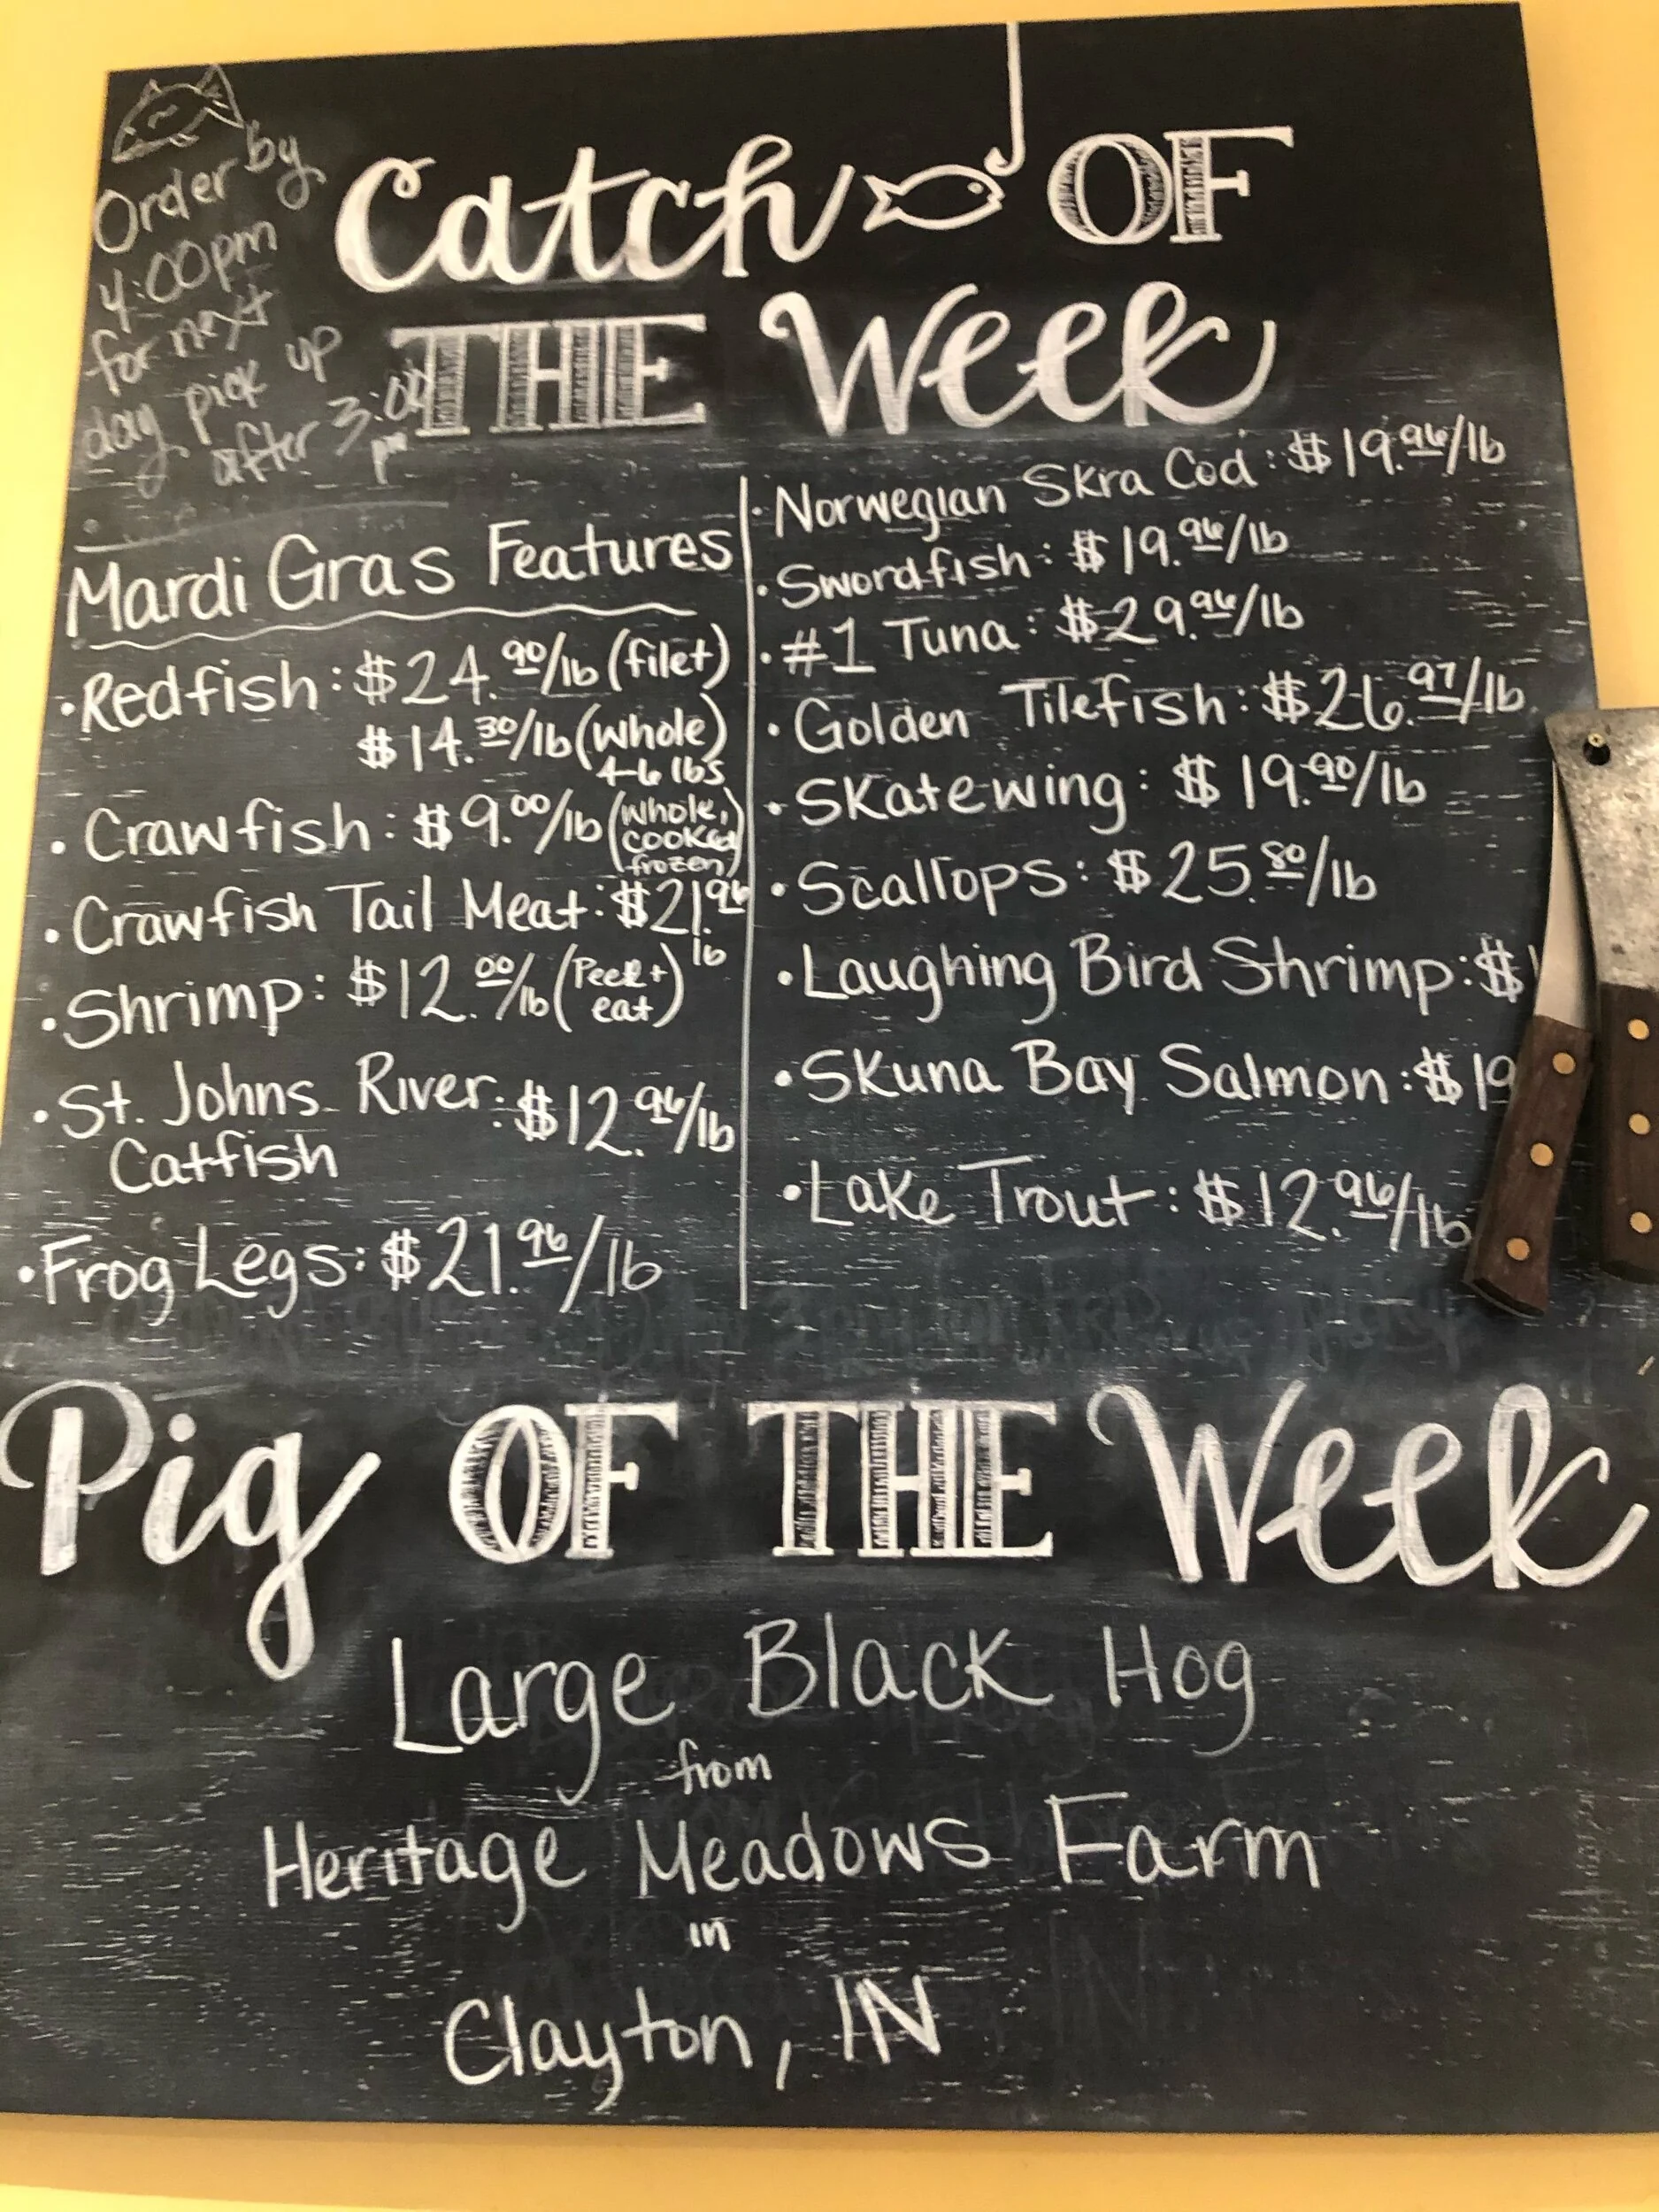 Order by
4:00pm
for next
day pick up
after 3:00
pm
Catch OF
THE Week
Mardi Gras Features
• Redfish: $24.90/lb (filet)
$14.30/lb (whole)
4-6 lbs
• Crawfish: $9.00/lb (whole,
cooked
frozen)
• Crawfish Tail Meat: $21.96
lb
• Shrimp: $12.00/lb (Peel +
eat)
• St. Johns River: $12.96/lb
Catfish
• Frog Legs: $21.96/lb
• Norwegian Skra Cod: $19.96/lb
• Swordfish: $19.96/lb
• #1 Tuna: $29.96/lb
• Golden Tilefish: $26.97/lb
• Skatewing: $19.90/lb
• Scallops: $25.80/lb
• Laughing Bird Shrimp: $1
• Skuna Bay Salmon: $19
• Lake Trout: $12.96/lb
Pig OF THE Week
Large Black Hog
from
Heritage Meadows Farm
in
Clayton, IN